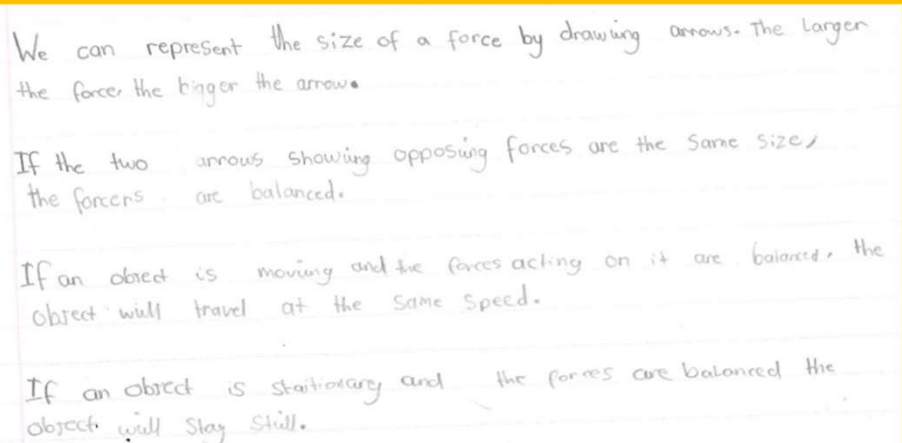 We can represent the size of a force by drawing arrows. The larger
the force, the bigger the arrow.
If the two arrows showing opposing forces are the same size,
the forcers are balanced.
If an obsect is moving and the forces acting on it are balanced, the
obsect will travel at the same speed.
If an obsect is staitionary and the forces are balanced the
object will stay still.